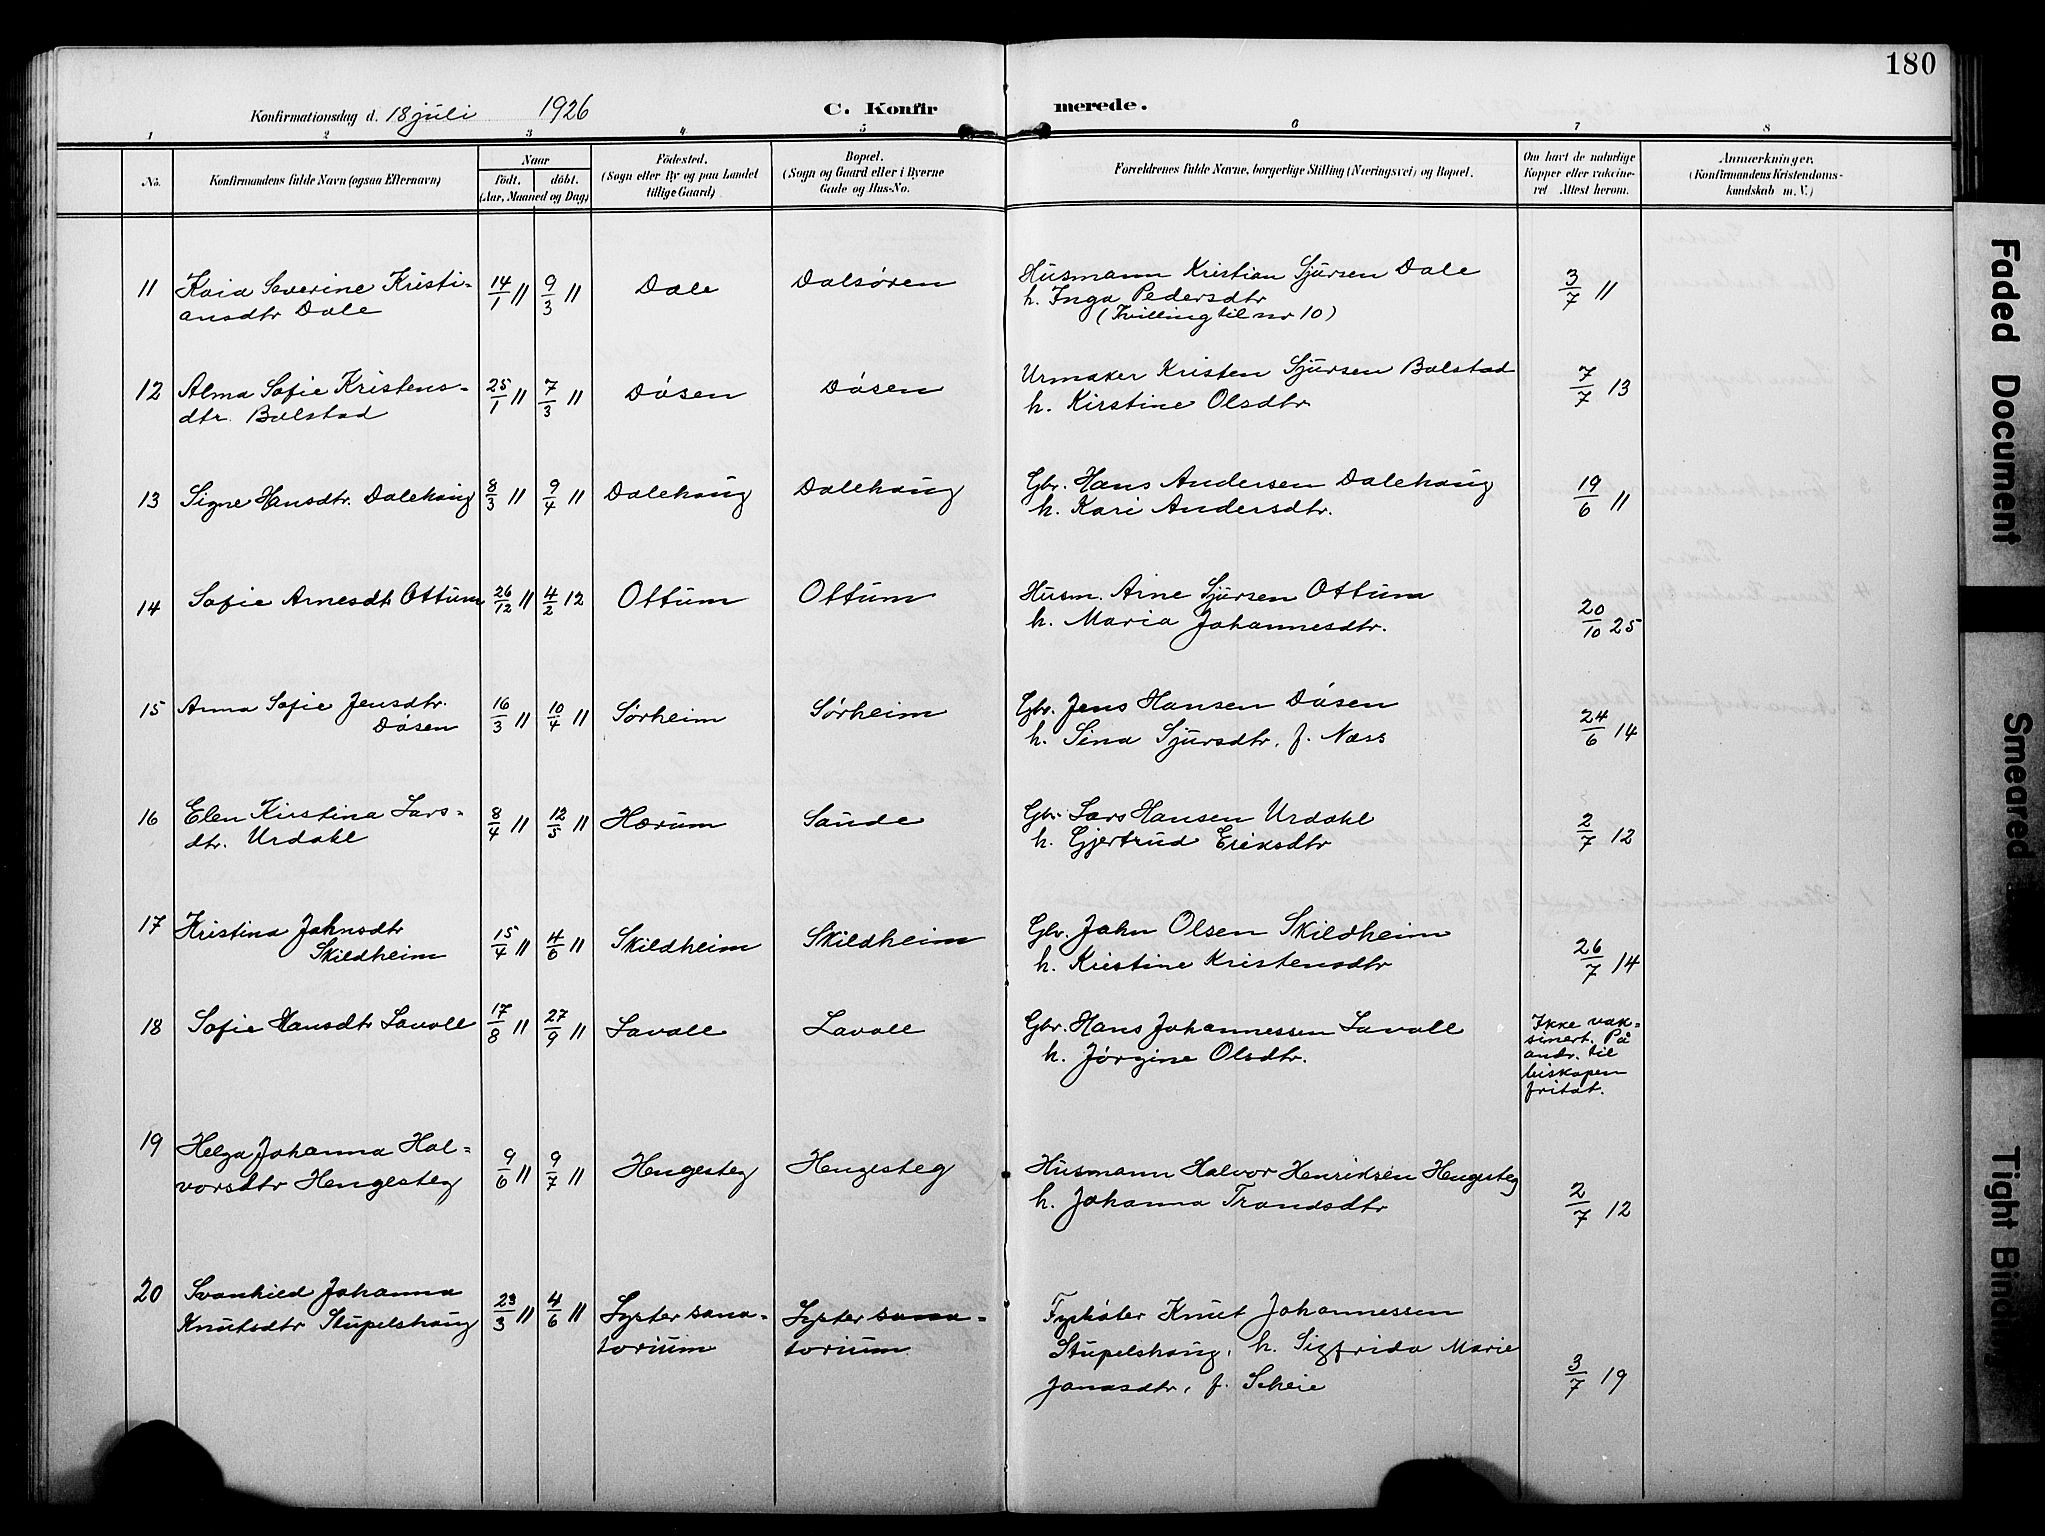 180
Konfirmationsdag d. 18 juli 1926
C. Konfir merede.
1 2 3 4 5 6 7 8
No. Konfirmandens fulde Navn (ogsaa Efternavn)
Naar
födt. döbt.
(Aar, Maaned og Dag)
Födested.
(Sogn eller By og paa Landet
tillige Gaard)
Bopæl.
(Sogn og Gaard eller i Byerne
Gade og Hus-No.
Forældrenes fulde Navne, borgerlige Stilling (Næringsvei) og Bopæl.
Om havt de naturlige
Kopper eller vakcine-
ret Attest herom.
Anmærkninger.
(Konfirmandens Kristendoms-
kundskab m. V.)
11 Kaia Severine Kristi- 14/1 11 9/3 11 Dale Dalsøren Husmann Kristian Sjursen Dale 3/7 11
ansdtr Dale h. Inga Pedersdtr
(Tvilling til nr 10)
12 Alma Sofie Kristens- 25/1 11 7/3 11 Døsen Døsen Urmaker Kristen Sjursen Bolstad 7/7 13
dtr. Bolstad h. Kirstine Olsdtr.
13 Signe Hansdtr. Dalehaug 8/3 11 9/4 11 Dalehaug Dalehaug Gbr. Hans Andersen Dalehaug 19/6 11
h. Kari Andersdtr.
14 Sofie Arnesdt Ottum 26/12 11 4/2 12 Ottum Ottum Husm. Arne Sjursen Ottum
h. Maria Johannesdtr. 20/10 25
15 Anna Sofie Jensdtr. 16/3 11 10/4 11 Sørheim Sørheim Gbr. Jens Hansen Døsen
Døsen h. Sina Sjursdtr. f. Næss 24/6 14
16 Elen Kirstina Lars- 8/4 11 12/5 11 Hærum Sande Gbr. Lars Hansen Urdahl 2/7 12
dtr. Urdahl h. Gjertrud Eriksdtr
17 Kristina Johnsdtr 15/4 11 4/6 11 Skildheim Skildheim Gbr. John Olsen Skildheim
Skildheim h. Kristine Kristensdtr 26/7 14
18 Sofie Hansdtr Lavoll 17/8 11 27/9 11 Lavoll Lavoll Gbr. Hans Johannessen Lavoll Ikke vak-
h. Jørgine Olsdtr. sinert. På
andr. til
biskopen
fritat.
19 Helga Johanna Hal- 9/6 11 9/7 11 Hengesteg Hengesteg Husmann Halvor Henriksen Hengesteg
vorsdtr Hengesteg h. Johanna Trondsdtr 2/7 12
20 Svanhild Johanna 23/3 11 4/6 11 Lyster sana- Lyster sana- Fyrbøter Knut Johannessen
Knutsdtr Stupelshaug torium torium Stupelshaug, h. Sigfrida Marie
Jonasdtr, f. Scheie 3/7 19
Faded Document
Smeared
Tight Binding